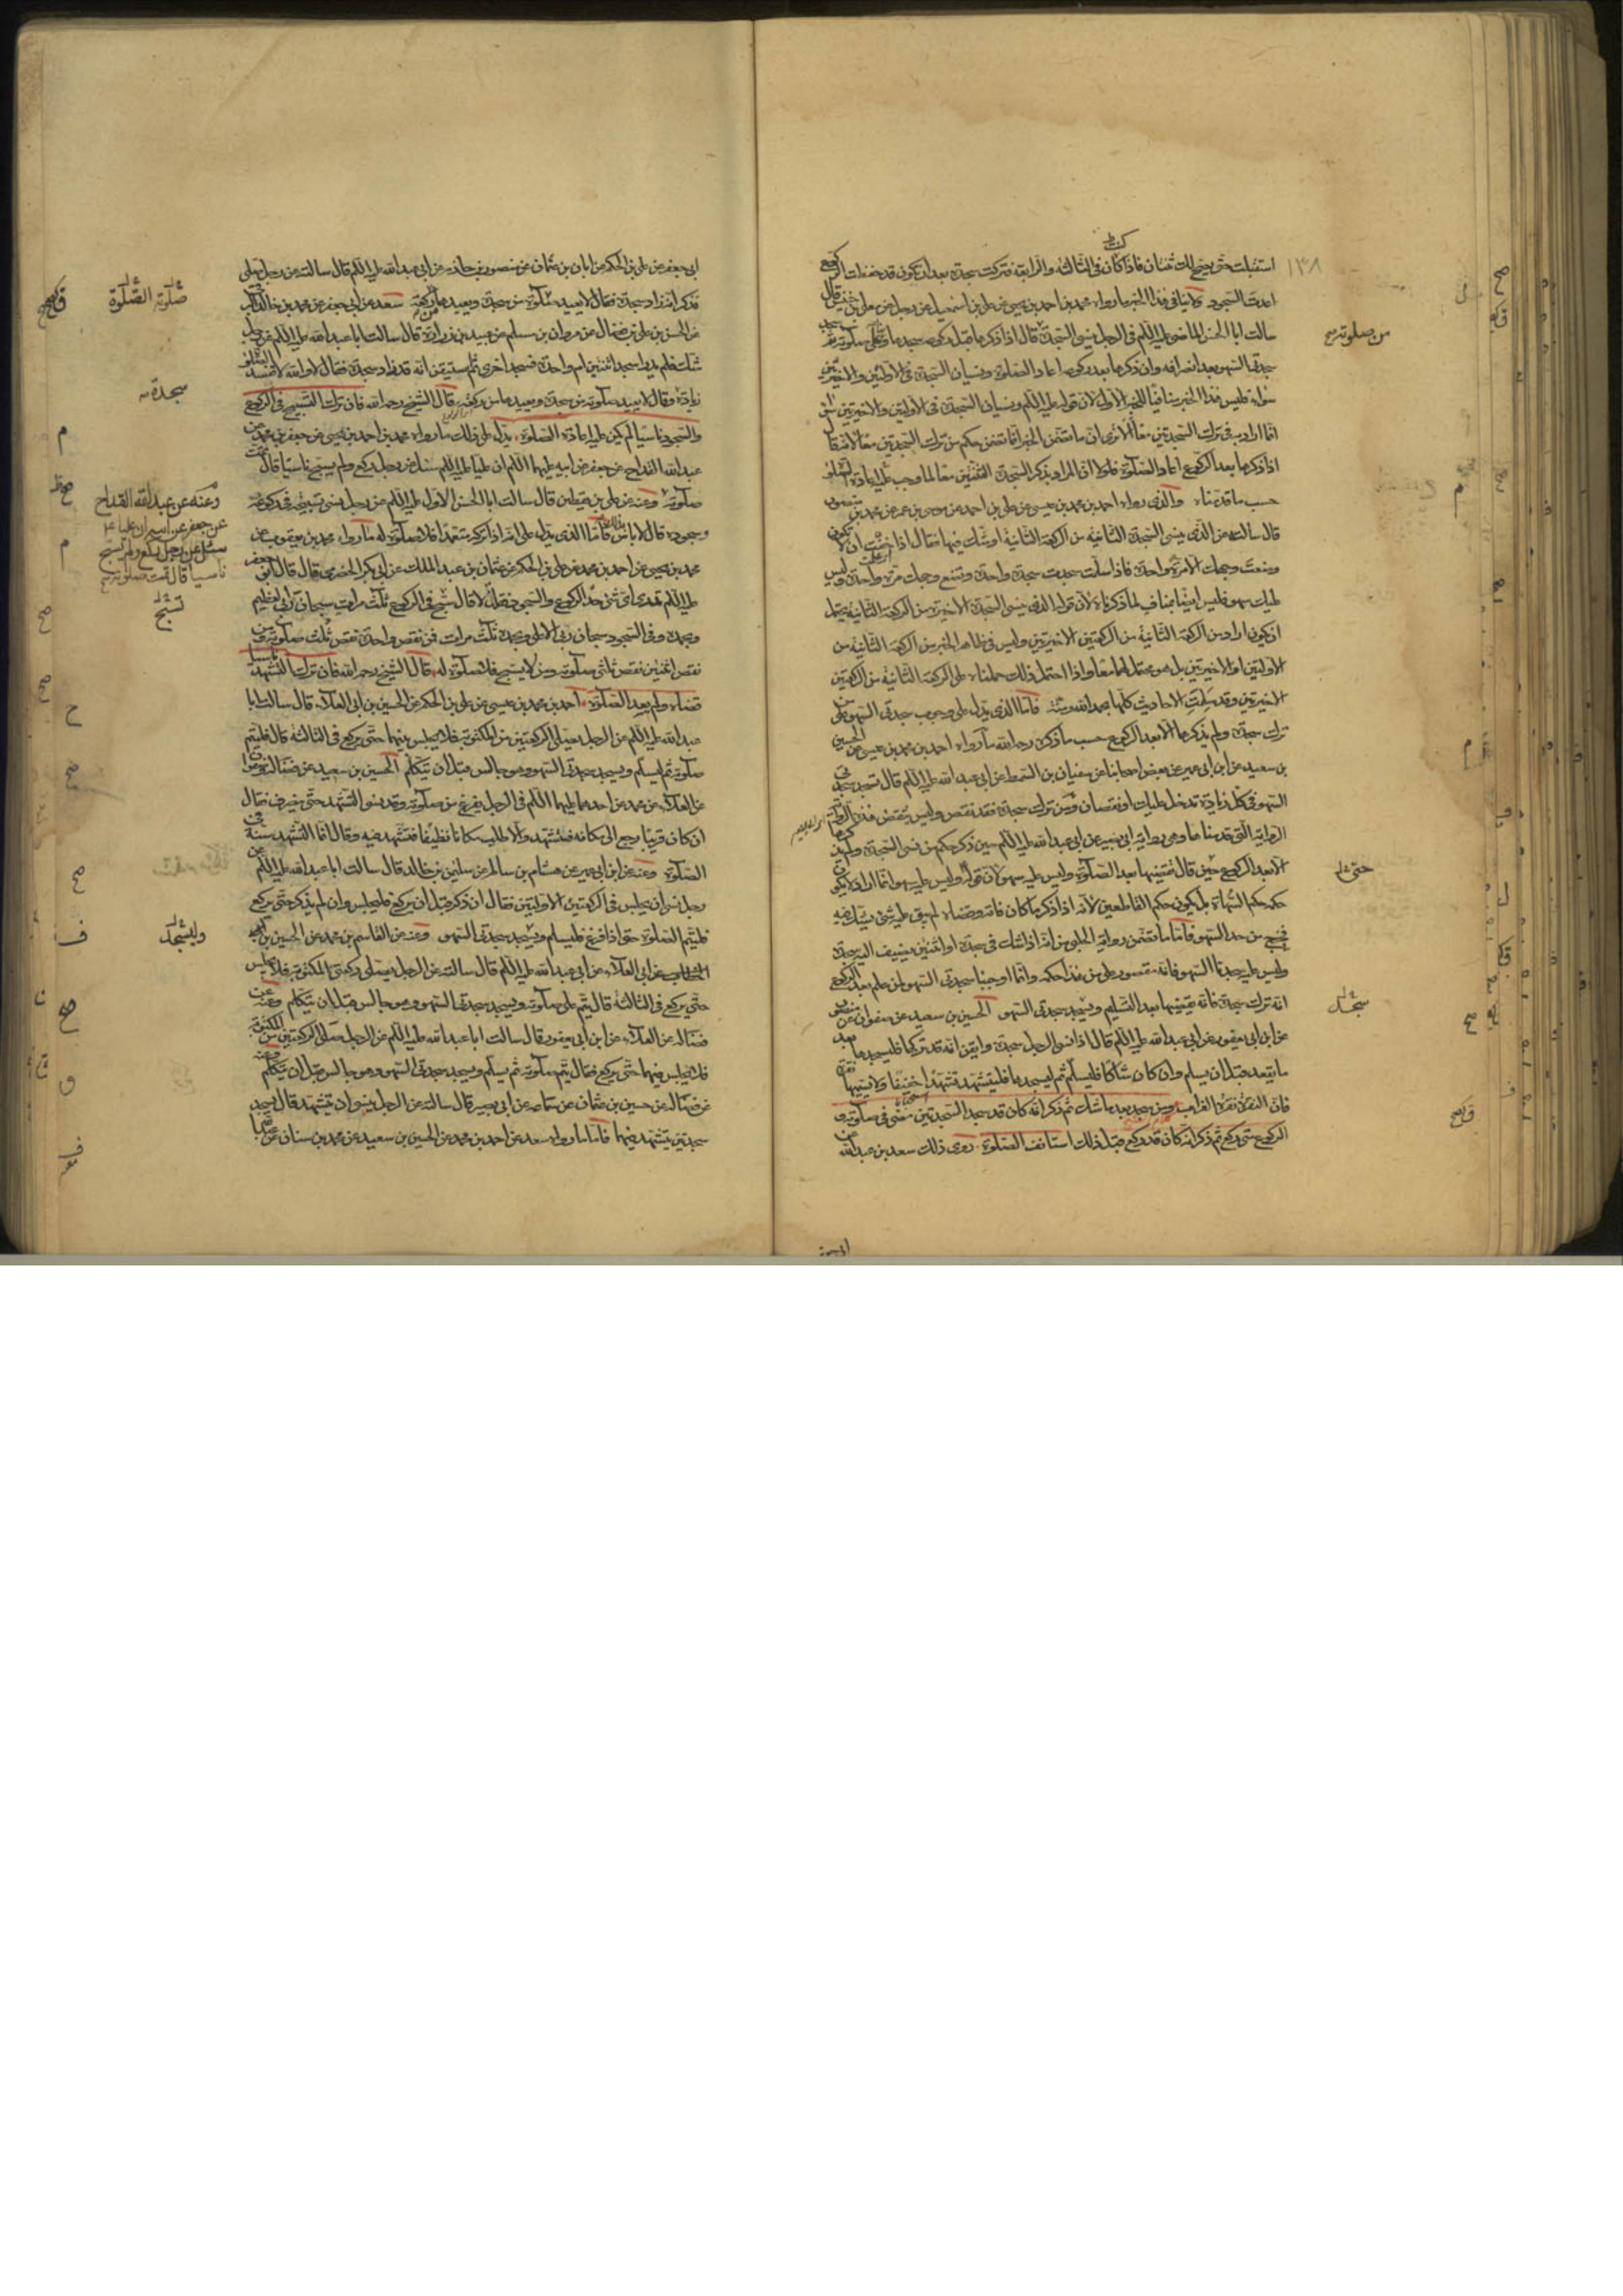 ١٣٨
استقبلت حتى يصح لك ثنتان فاذا كان في الثالثة والرابعة فتركت سجدة بعد ان تكون قد حفظت الركوع
اعدت السجود ولا ينافي هذا الخبر ما رواه محمد بن احمد بن يحيى عن علي بن اسمعيل عن رجل عن معلى بن خنيس قال
سالت ابا الحسن الماضي عليه السلم في الرجل ينسى السجدة قال اذا ذكرها قبل ركوعه سجدها وبنى على صلوته ثم سجد
سجدتي السهو بعد انصرافه وان ذكرها بعد ركوعه اعاد الصلوة ونسيان السجدة في الاولتين والاخيرتين
سواء فليس هذا الخبر منافيا للخبر الاول لان قوله عليه السلم ونسيان السجدة في الاولتين والاخيرتين سواء
انما اراد به في ترك السجدتين معا الا ترى ان ما تضمن الخبر انما تضمن حكم من ترك السجدتين معا لانه قال
اذا ذكرها بعد الركوع اعاد الصلوة فلولا ان المراد بذكر السجدة الثنتين معا لما وجب عليه اعادة الصلوة
حسب ما قدمناه والذي رواه احمد بن محمد بن عيسى عن علي بن احمد عن موسى بن عمر عن محمد بن منصور
قال سالته عن الذي ينسى السجدة الثانية من الركعة الثانية او شك فيها فقال اذا خفت ان لا تكون
وضعت وجهك الا مرة واحدة فاذا سلمت سجدت سجدة واحدة وتضع وجهك مرة واحدة وليس
عليك سهو فليس ايضا بمناف لما ذكرناه لان قوله الذي ينسى السجدة الاخيرة من الركعة الثانية يحتمل
ان يكون اراد من الركعة الثانية من الركعتين الاخيرتين وليس في ظاهر الخبر من الركعة الثانية من
الاولتين او الاخيرتين بل هو محتمل لهما معا واذا احتمل ذلك حملناه على الركعة الثانية من الركعتين
الاخيرتين وقد سلمت الاحاديث كلها بحمد الله ومنه فاما الذي يدل على وجوب سجدتي السهو على
ترك سجدة ولم يذكرها الا بعد الركوع حسب ما ذكره رحمه الله ما رواه احمد بن محمد بن عيسى عن الحسين
بن سعيد عن ابن ابي عمير عن بعض اصحابنا عن سفيان بن السمط عن ابي عبد الله عليه السلم قال تسجد سجدتي
السهو في كل زيادة تدخل عليك او نقصان ومن ترك سجدة فقد نقص وليس ينقض هذه الرواية
الرواية التي قدمناها وهي رواية ابي بصير عن ابي عبد الله عليه السلم حين ذكر حكم من نسي السجدة ولم يذكرها
الا بعد الركوع حين قال يقضيها بعد الصلوة وليس عليه سهو لان قوله وليس عليه سهو انما اراد لا يكون
حكمه حكم السهاة بل يكون حكم القاطعين لانه اذا ذكر ما كان فاته وقضاه لم يبق عليه شيء يشك فيه
فخرج عن حد السهو فاما ما تضمن رواية الحلبي من انه اذا شك في سجدة او اثنتين يضيف اليه سجدة
وليس عليه سجدتا السهو فانه مقصور على من هذا حكمه وانما اوجبنا سجدتي السهو على من علم بعد الركوع
انه ترك سجدة فانه يقضيها بعد التسليم ويسجد سجدتي السهو الحسين بن سعيد عن صفوان عن منصور
عن ابن ابي يعفور عن ابي عبد الله عليه السلم قال اذا نسي الرجل سجدة وايقن انه قد تركها فليسجدها بعد
ما يقعد قبل ان يسلم وان كان شاكا فليسلم ثم ليسجدها فليتشهد تشهدا خفيفا ولا يسميها نقرة
فان النقرة نقرة الغراب ومن سجد بعد ما شك ثم ذكر انه كان قد سجد السجدتين مضى في صلوته و
الركوع متى ركع ثم ذكر انه كان قد ركع قبل ذلك استانف الصلوة روى ذلك سعد بن عبد الله عن
من صلوته
حتى
سجد
ابي جعفر عن علي بن الحكم عن ابان بن عثمان عن منصور بن حازم عن ابي عبد الله عليه السلم قال سالته عن رجل صلى
فذكر انه زاد سجدة فقال لا يعيد صلوة من سجدة ويعيدها من ركعة سعد عن ابي جعفر عن محمد بن خالد البرقي
عن الحسن بن علي بن فضال عن مروان بن مسلم عن عبيد بن زرارة قال سالت ابا عبد الله عليه السلم عن رجل
شك فلم يدر اسجد اثنتين ام واحدة فسجد اخرى ثم استيقن انه قد زاد سجدة فقال لا والله لا تفسد الصلوة
زيادة وقال لا يعيد صلوته من سجدة ويعيدها من ركعة قال الشيخ رحمه الله فان ترك التسبيح في الركوع
والسجود ناسيا لم يكن عليه اعادة الصلوة يدل على ذلك ما رواه محمد بن احمد بن يحيى عن جعفر بن محمد عن
عبد الله القداح عن جعفر عن ابيه عليهما السلم ان عليا عليه السلم سئل عن رجل ركع ولم يسبح ناسيا قال تمت
صلوته وعنه عن علي بن يقطين قال سالت ابا الحسن الاول عليه السلم عن رجل نسي تسبيحة في ركوعه
وسجوده قال لا باس بذلك فاما الذي يدل على انه اذا تركه متعمدا فلا صلوة له ما رواه محمد بن يعقوب عن
محمد بن يحيى عن احمد بن محمد عن علي بن الحكم عن عثمان بن عبد الملك عن ابي بكر الحضرمي قال قال ابو جعفر
عليه السلم تدري اي شيء حد الركوع والسجود فقلت لا قال تسبح في الركوع ثلث مرات سبحان ربي العظيم
وبحمده وفي السجود سبحان ربي الاعلى وبحمده ثلث مرات فمن نقص واحدة نقص ثلث صلوته ومن
نقص اثنتين نقص ثلثي صلوته ومن لا يسبح فلا صلوة له قال الشيخ رحمه الله فان ترك التشهد ناسيا
قضاه ولم يعد الصلوة احمد بن محمد بن عيسى عن علي بن الحكم عن الحسين بن ابي العلاء قال سالت ابا
عبد الله عليه السلم عن الرجل يصلي الركعتين من المكتوبة فلا يجلس فيهما حتى يركع في الثالثة قال فليتم
صلوته ثم ليسلم ويسجد سجدتي السهو وهو جالس قبل ان يتكلم الحسين بن سعيد عن فضالة وصفوان
عن العلاء عن محمد عن احدهما عليهما السلم في الرجل يفرغ من صلوته وقد نسي التشهد حتى ينصرف فقال
ان كان قريبا رجع الى مكانه فتشهد والا طلب مكانا نظيفا فتشهد فيه وقال انما التشهد سنة في
الصلوة وعنه عن ابن ابي عمير عن هشام بن سالم عن سليمن بن خالد قال سالت ابا عبد الله عليه السلم عن
رجل نسي ان يجلس في الركعتين الاولتين فقال ان ذكر قبل ان يركع فليجلس وان لم يذكر حتى يركع
فليتم الصلوة حتى اذا فرغ فليسلم ويسجد سجدتي السهو وعنه عن القاسم بن محمد عن الحسين بن
ابي العلاء عن ابي عبد الله عليه السلم قال سالته عن الرجل يصلي ركعتي المكتوبة فلا يجلس
حتى يركع في الثالثة قال يتم على صلوته ويسجد سجدتي السهو وهو جالس قبل ان يتكلم وعنه عن
فضالة عن العلاء عن ابن ابي يعفور قال سالت ابا عبد الله عليه السلم عن الرجل صلى الركعتين من المكتوبة
فلا يجلس فيهما حتى يركع فقال يتم صلوته ثم يسلم ويسجد سجدتي السهو وهو جالس قبل ان يتكلم وعنه
عن فضالة عن حسين بن عثمان عن سماعة عن ابي بصير قال سالته عن الرجل ينسى ان يتشهد قال يسجد
سجدتين يتشهد فيهما فاما ما رواه سعد عن احمد بن محمد عن الحسين بن سعيد عن محمد بن سنان عن
صلوته الصلوة
سجدة
وعنه عن عبد الله القداح
عن جعفر عن ابيه ان عليا ع
سئل عن رجل ركع ولم يسبح
ناسيا قال تمت صلوته
تسبح
وليسجد